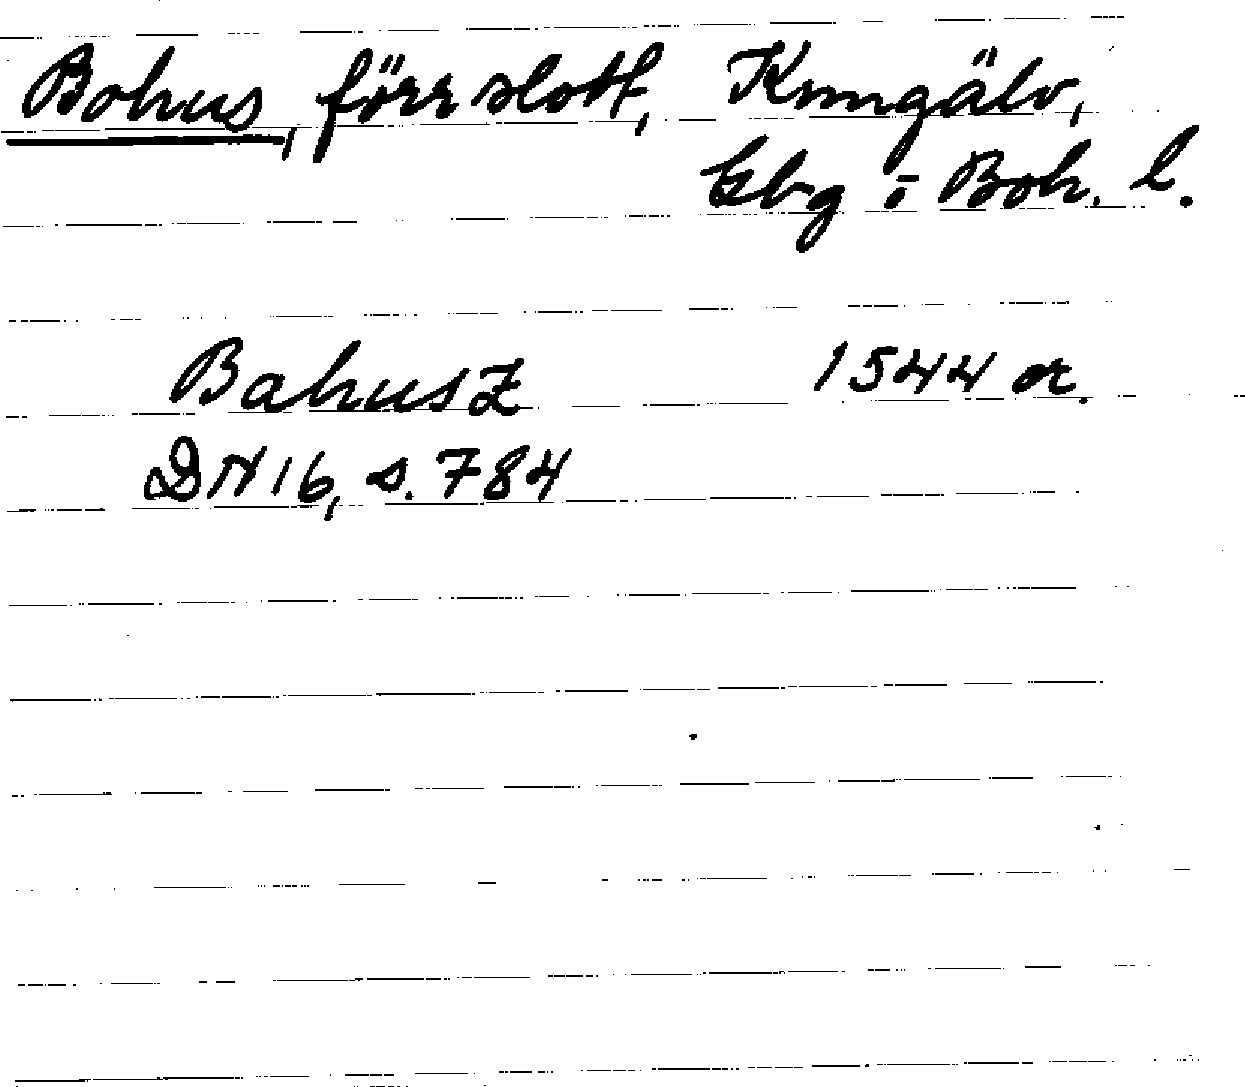 Bohus, förr slott, Kungälv,
Gbg o Boh. l.
Bahusz 1544 or.
DN 16, s. 784